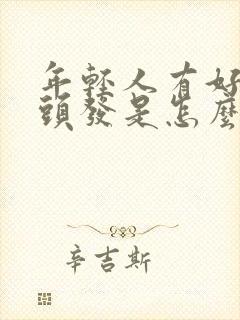 年輕人有好
頭發是怎麼
辛吉斯